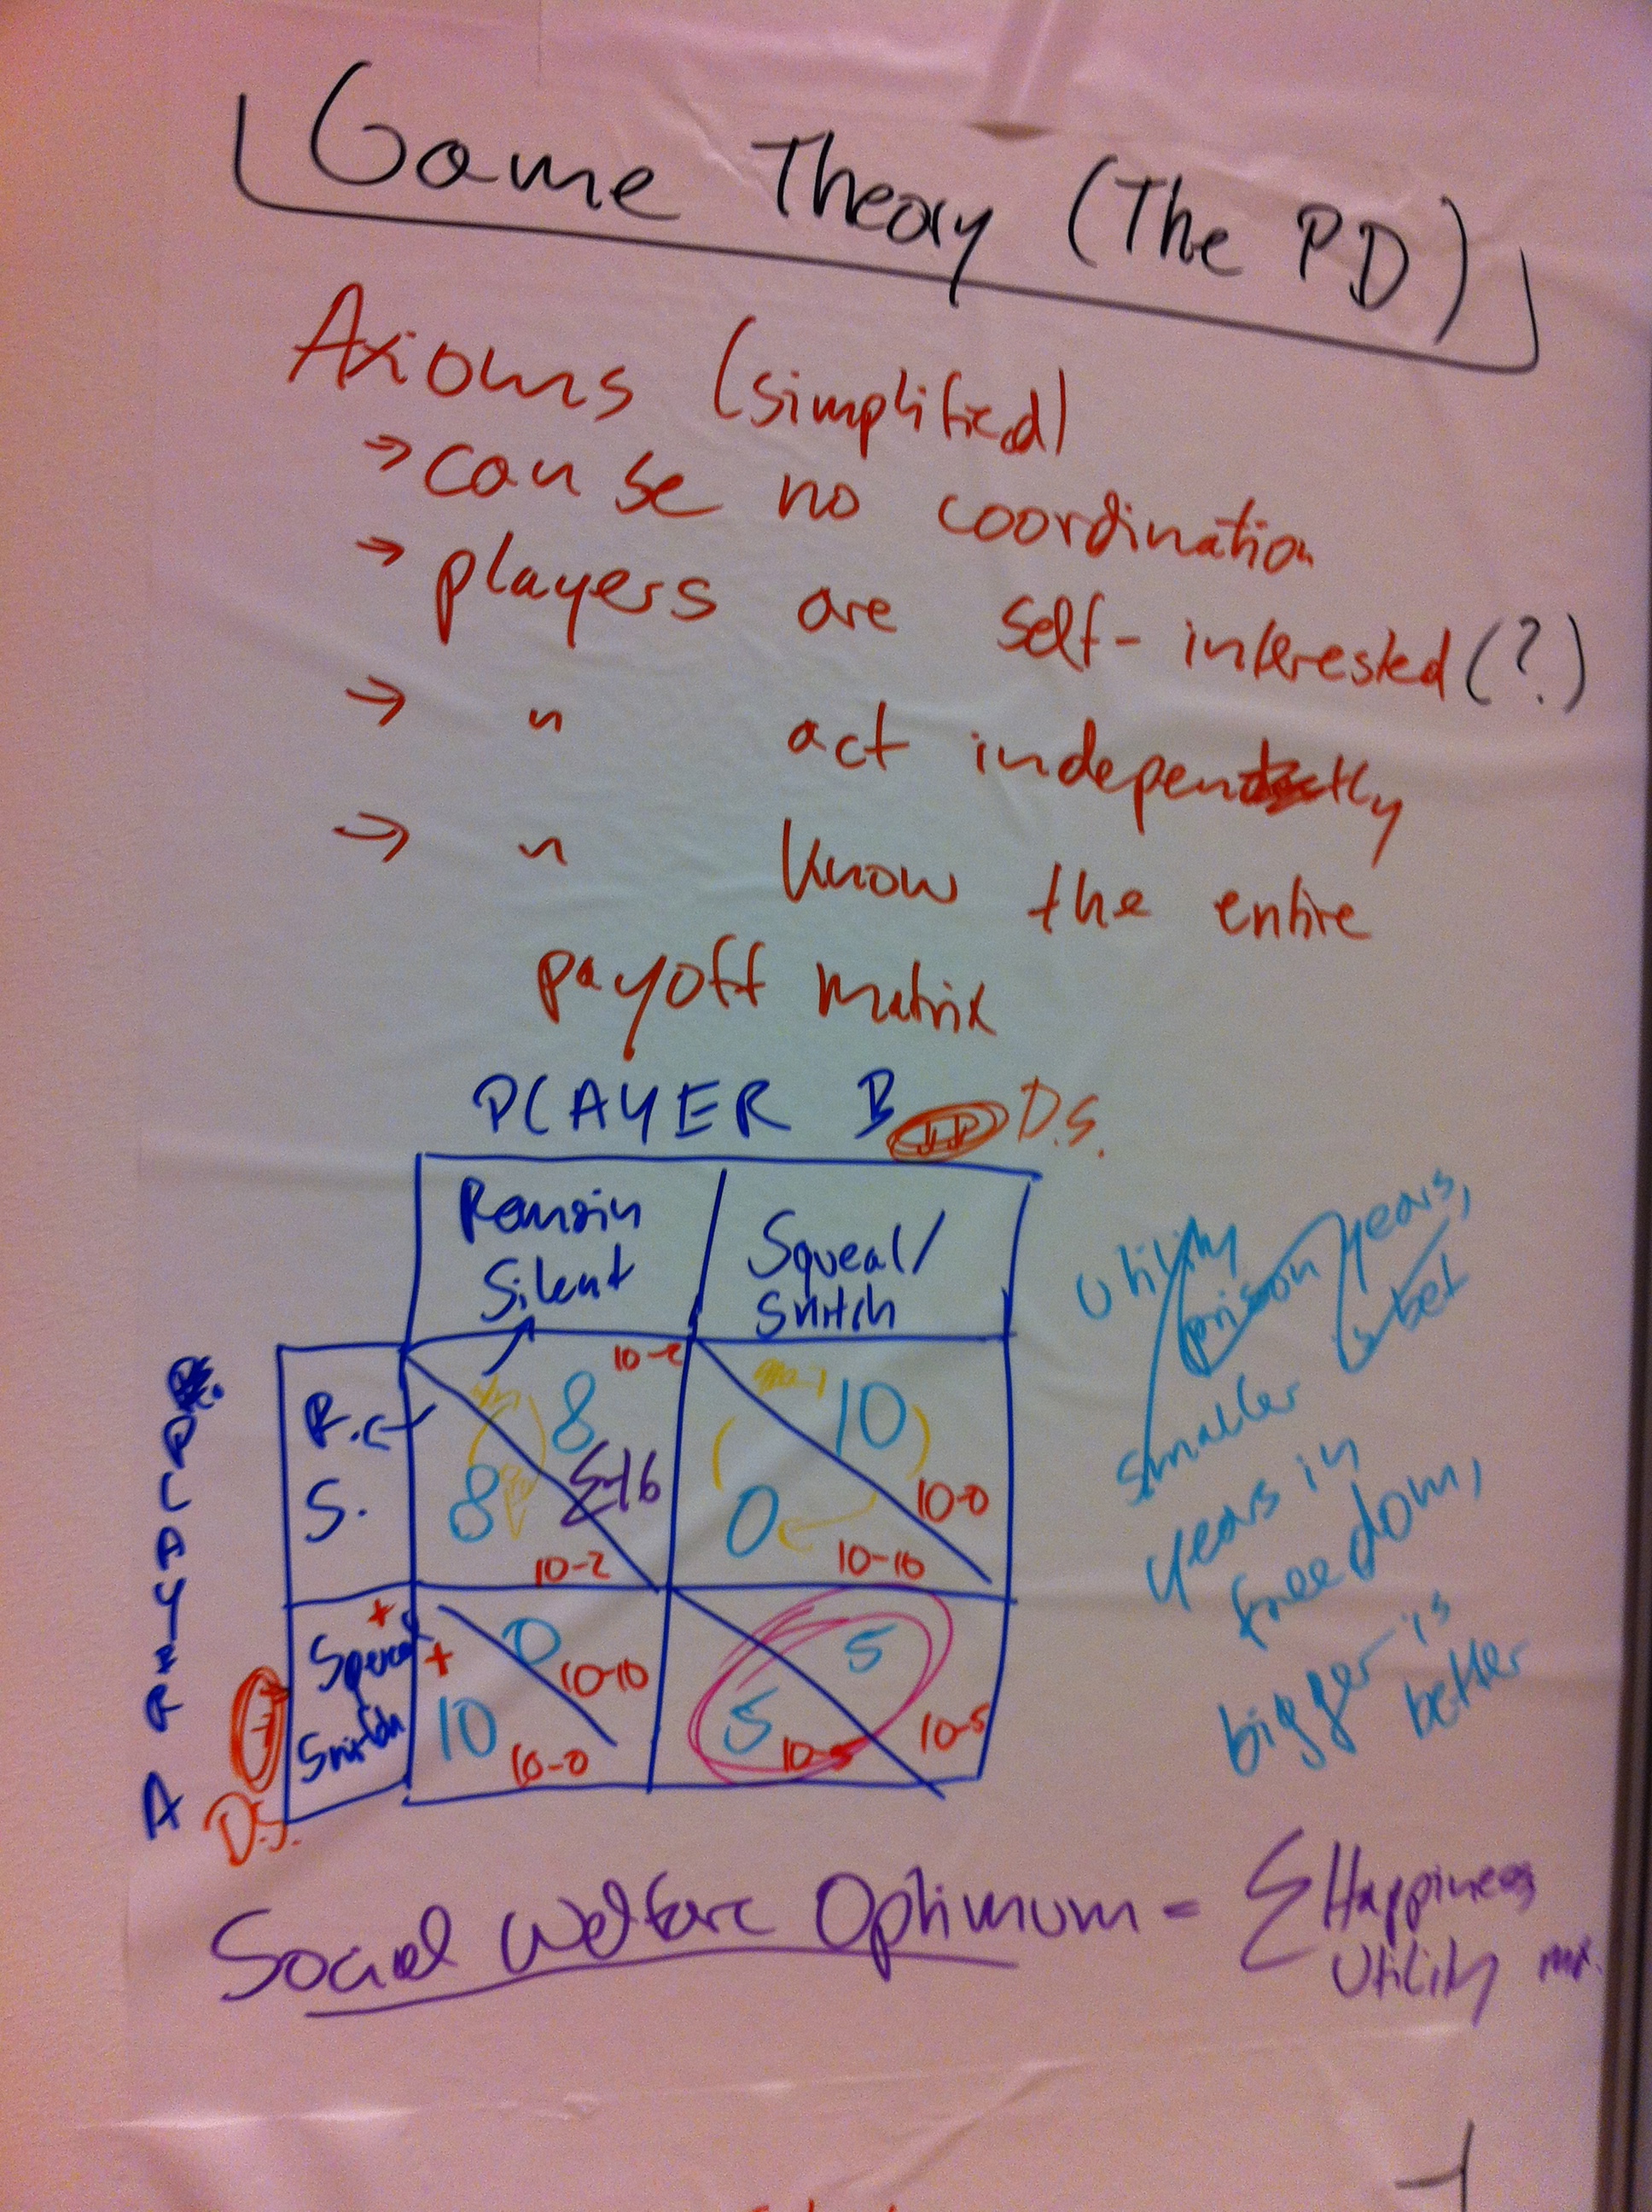 Game Theory (The PD)
Axioms (simplified)
→ can be no coordination
→ players are self-interested (?)
→ " act independently
→ " know the entire
payoff matrix
PLAYER B D.S.
Remain
Silent
Squeal/
Snitch
PLAYER A
R.
S.
10-2
8
8
Σ=16
10-2
10
0
10-0
10-10
Squeal
Snitch
D.S.
0
10-10
10
10-0
5
5
10-5
10-5
Utility
prison years,
smaller is bet
years in
freedom,
bigger is
better
Social Welfare Optimum = Σ Happiness
Utility